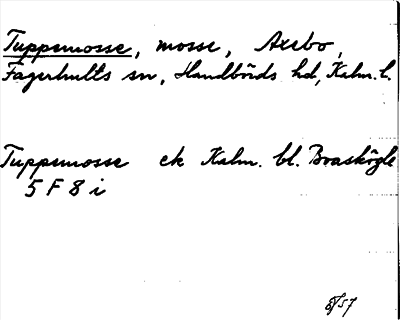 Tuppemosse, mosse, Axebo,
Fagerhults sn, Handbörds hd, Kalm. l.
Tuppemosse ek Kalm. bl. Boaskögle
5 F 8 i